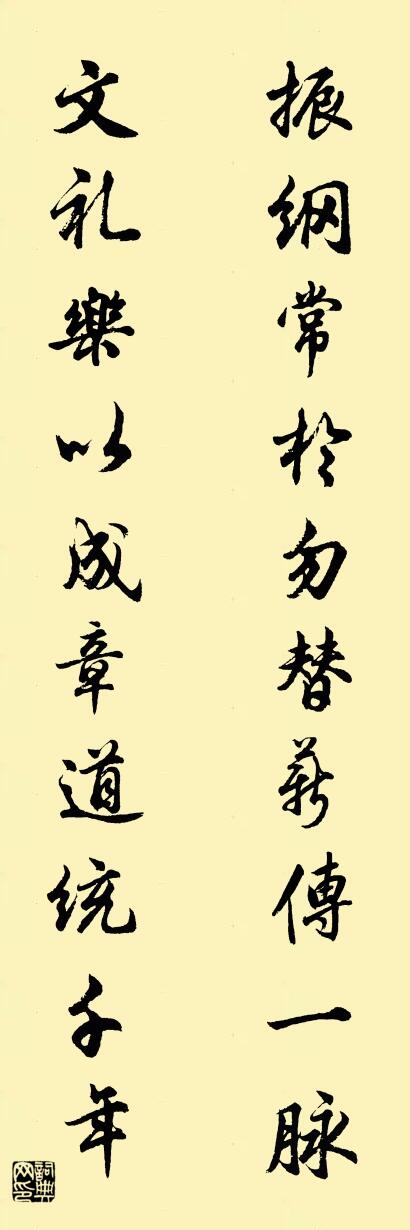 振纲常於勿替薪傳一脉
文礼樂以成章道统千年
詞典网印